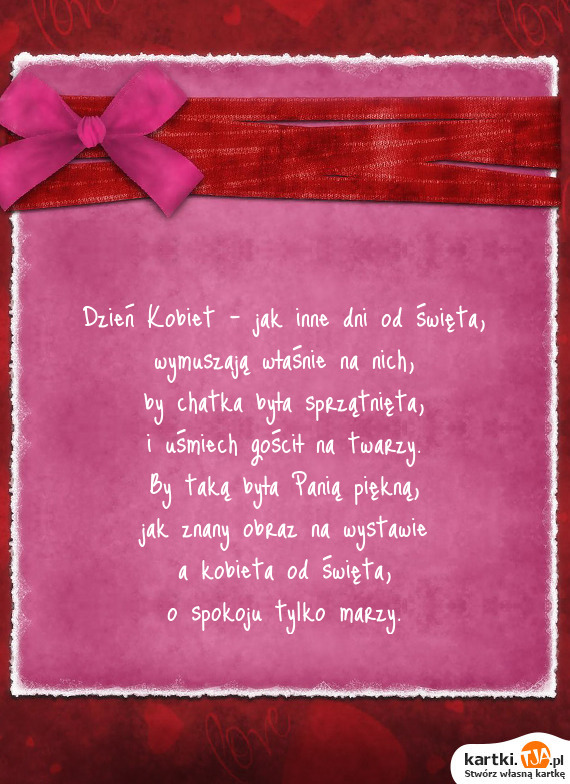 love
love
Dzień Kobiet - jak inne dni od święta,
wymuszają właśnie na nich,
by chatka była sprzątnięta,
i uśmiech gościł na twarzy.
By taką była Panią piękną,
jak znany obraz na wystawie
a kobieta od święta,
o spokoju tylko marzy.
love
kartki.TJA.pl
Stwórz własną kartkę